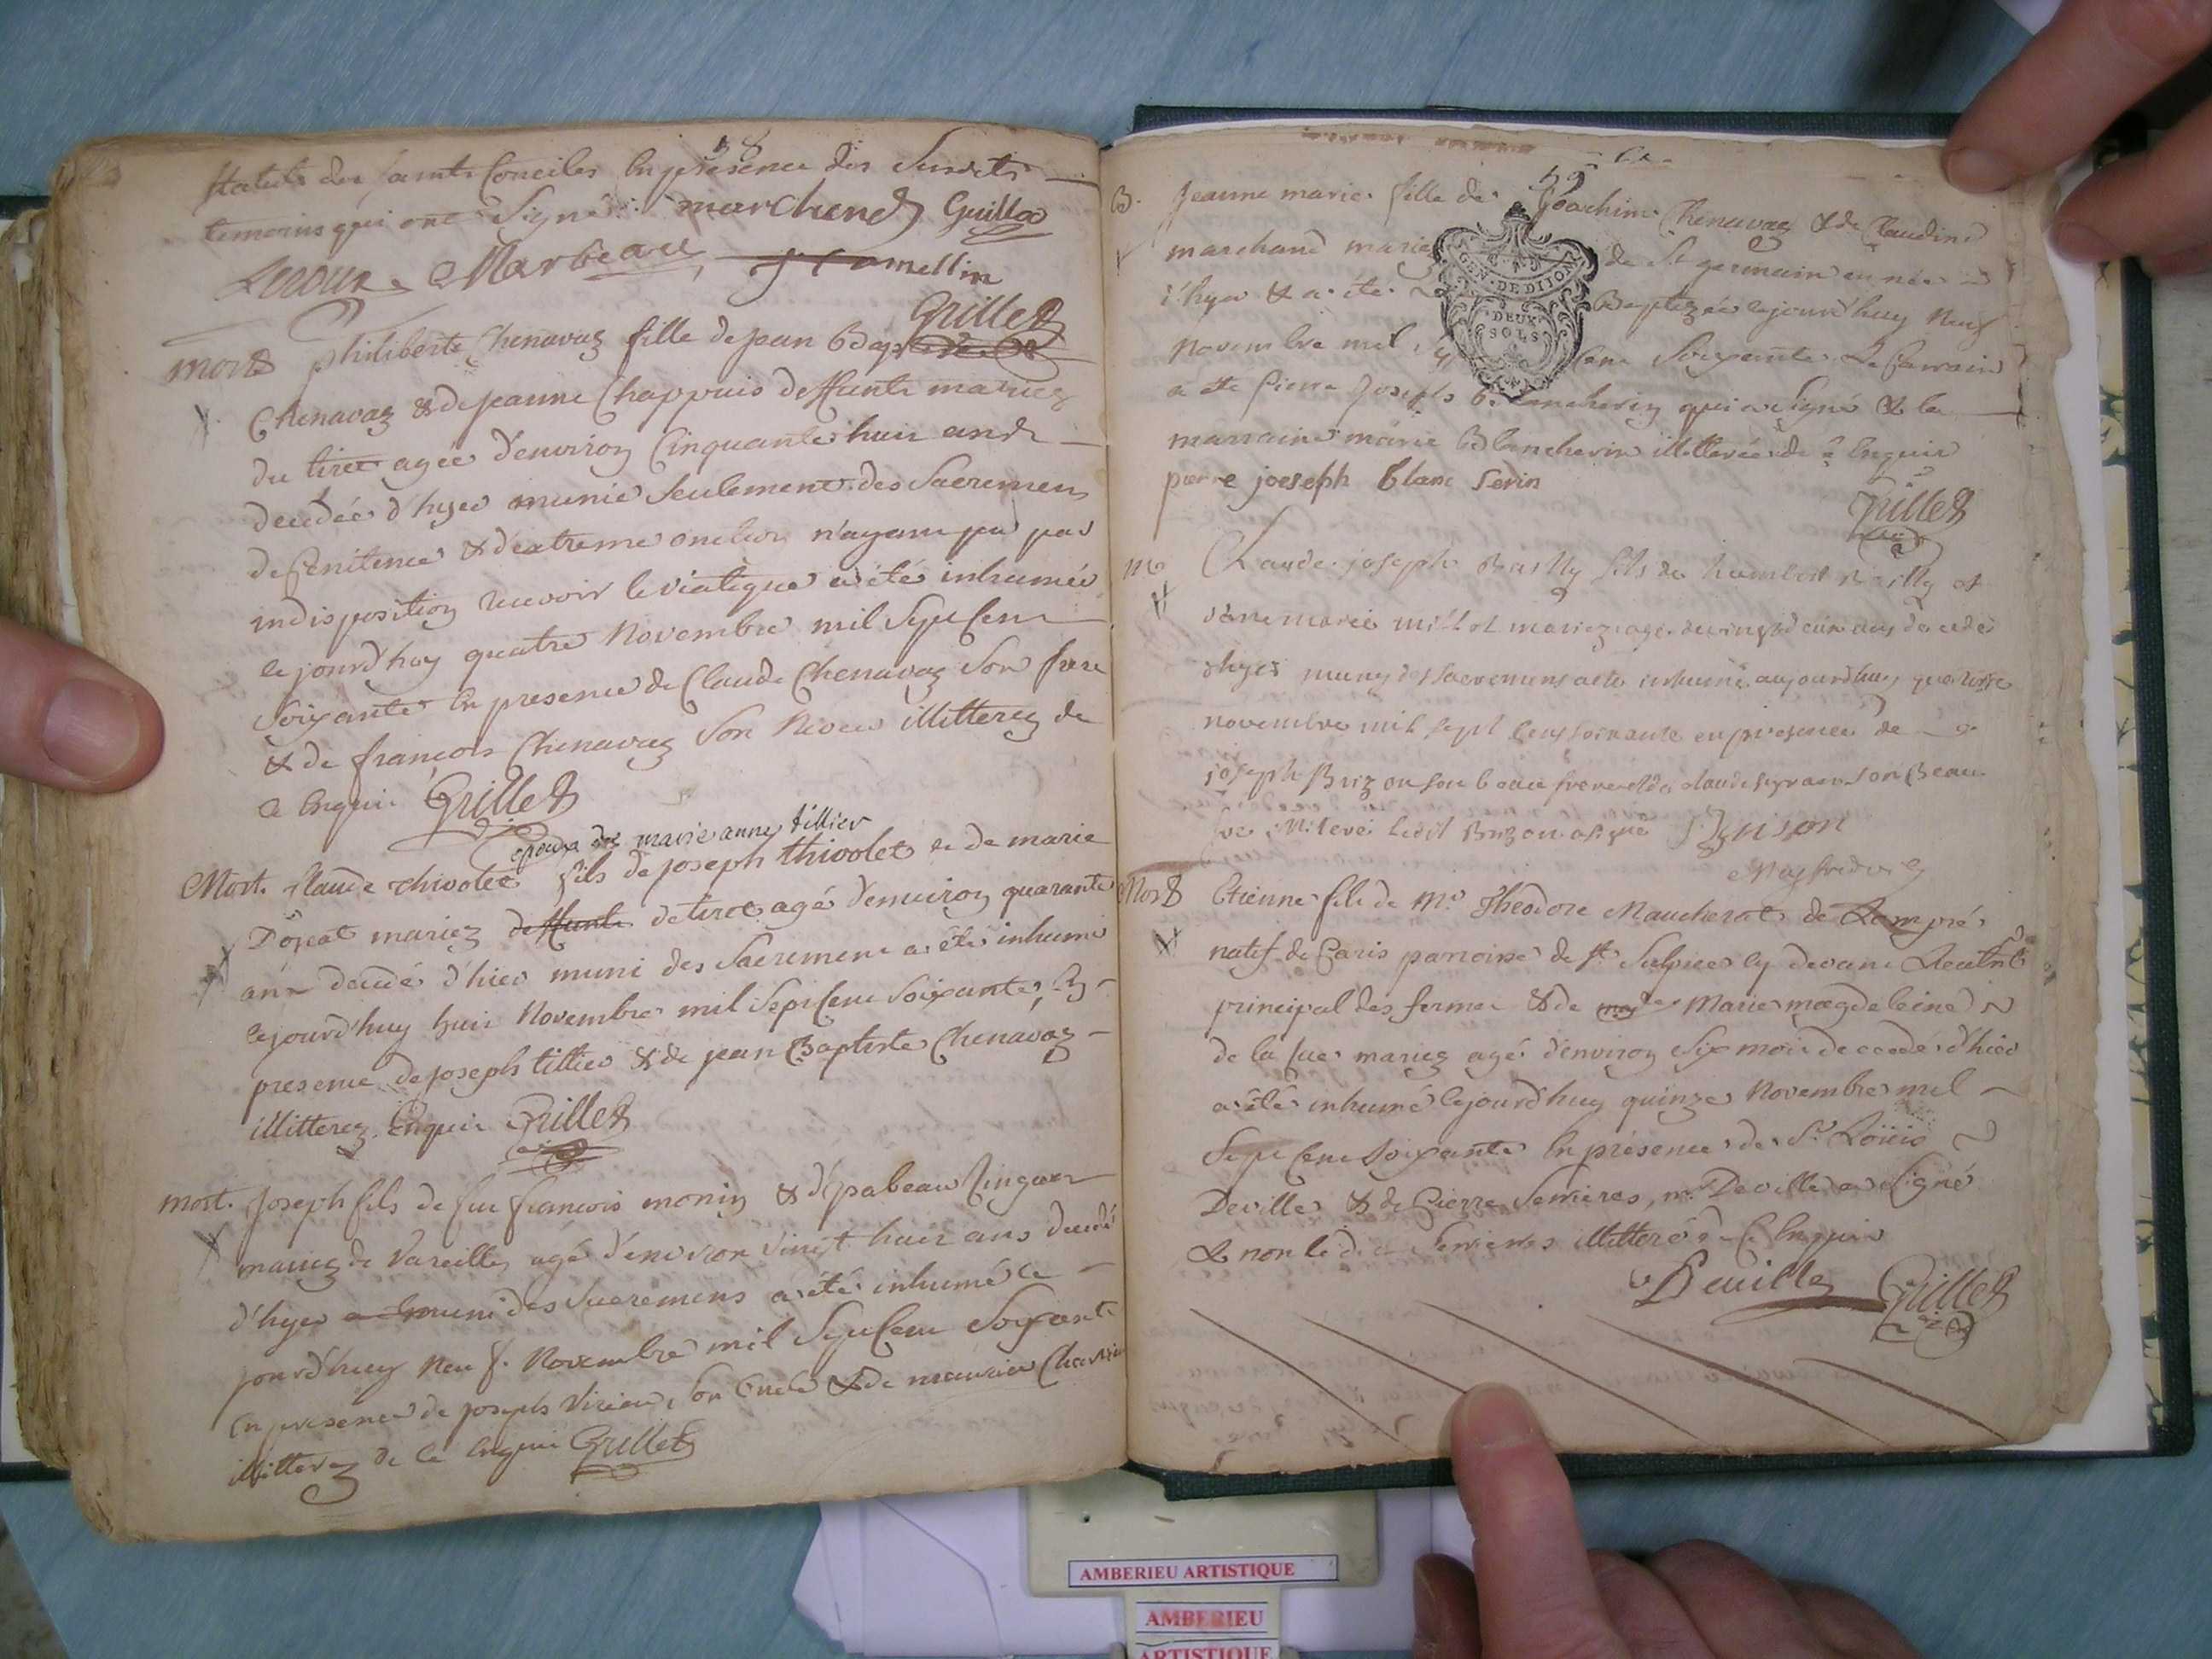 58
statuts des saints Conciles En presence des Susdits
temoins qui ont Signé marchend Guillot
Leroux Marbeau, J Camellin
Grillet
mort philiberte Chenavaz fille de jean Bapte
Chenavaz & de jeanne Chappuis deffunte mariez
du tiret agée d'environ Cinquante huit ans
decedée d'hyer munie Seulement des Sacremens
de Penitence & d'extreme onction n'ayant pu par
indisposition recevoir le viatique a été inhumée
ce jourd'huy quatre Novembre mil Sept Cent
Soixante En presence de Claude Chenavaz Son frere
& de françois Chenavaz Son Neveu illitterez de
ce Enquis Grillet
epoux de marie anne tillier
Mort. Claude thivolet fils de joseph thivolet et de marie
mariez deffunte de tiret agé d'environ quarante
ans decedé d'hier muni des Sacremens a été inhumé
cejourd'huy huit Novembre mil Sept Cent Soixante, En
presence de joseph tillier & de jean Baptiste Chenavaz
illitterez Enquis Grillet
mort. Joseph fils de feu francois monin & d'ysabeau
mariez de Vareilles agé d'environ vingt huit ans decedé
d'hyer muni des Sacremens a été inhumé ce
jourd'huy neuf. Novembre mil Sept Cent Soixante
En presence de joseph, Son Oncle & de maurice
illitterez de ce Enquis Grillet
59
B. Jeanne marie fille de Joachim Chenavaz & de Claudine
marchand mariez de St germain en née
d'hyer & a été Baptizée cejourd'huy neuf
GEN. DE DIJON
DEUX
SOLS
Novembre mil Sept Cent Soixante Le Parrain
a été Pierre Joseph Blancherin qui a Signé & la
marraine marie Blancherin illitterée de ce Enquis
pierre joeseph blanc Serin
Grillet
mo Claude joseph Bailly fils de humbert Bailly et
mariez agé de vingt deux ans decedé
d'hyer muny des sacremens a eté inhumé aujourdhuy quatorze
novembre mil sept cens soixante en presence de
joseph Buizon son beau frere et de claude son Beau
ledit Buizon a signé
Mort Etienne fils de Mr Theodore Maucherat de Lompré
natif de Paris parroisse de St Sulpice cy devant
principal des fermes & de Marie magdeleine
de la mariez agé d'environ Six mois decedé d'hier
a été inhumé cejourd'huy quinze Novembre mil
Sept Cent Soixante En présence de Sr Loüis
Deville & de Pierre Serrieres, mr Deville a Signé
& non ledit Serrieres illitteré de Ce Enquis
Deville Grillet
AMBERIEU ARTISTIQUE
AMBERIEU
ARTISTIQUE